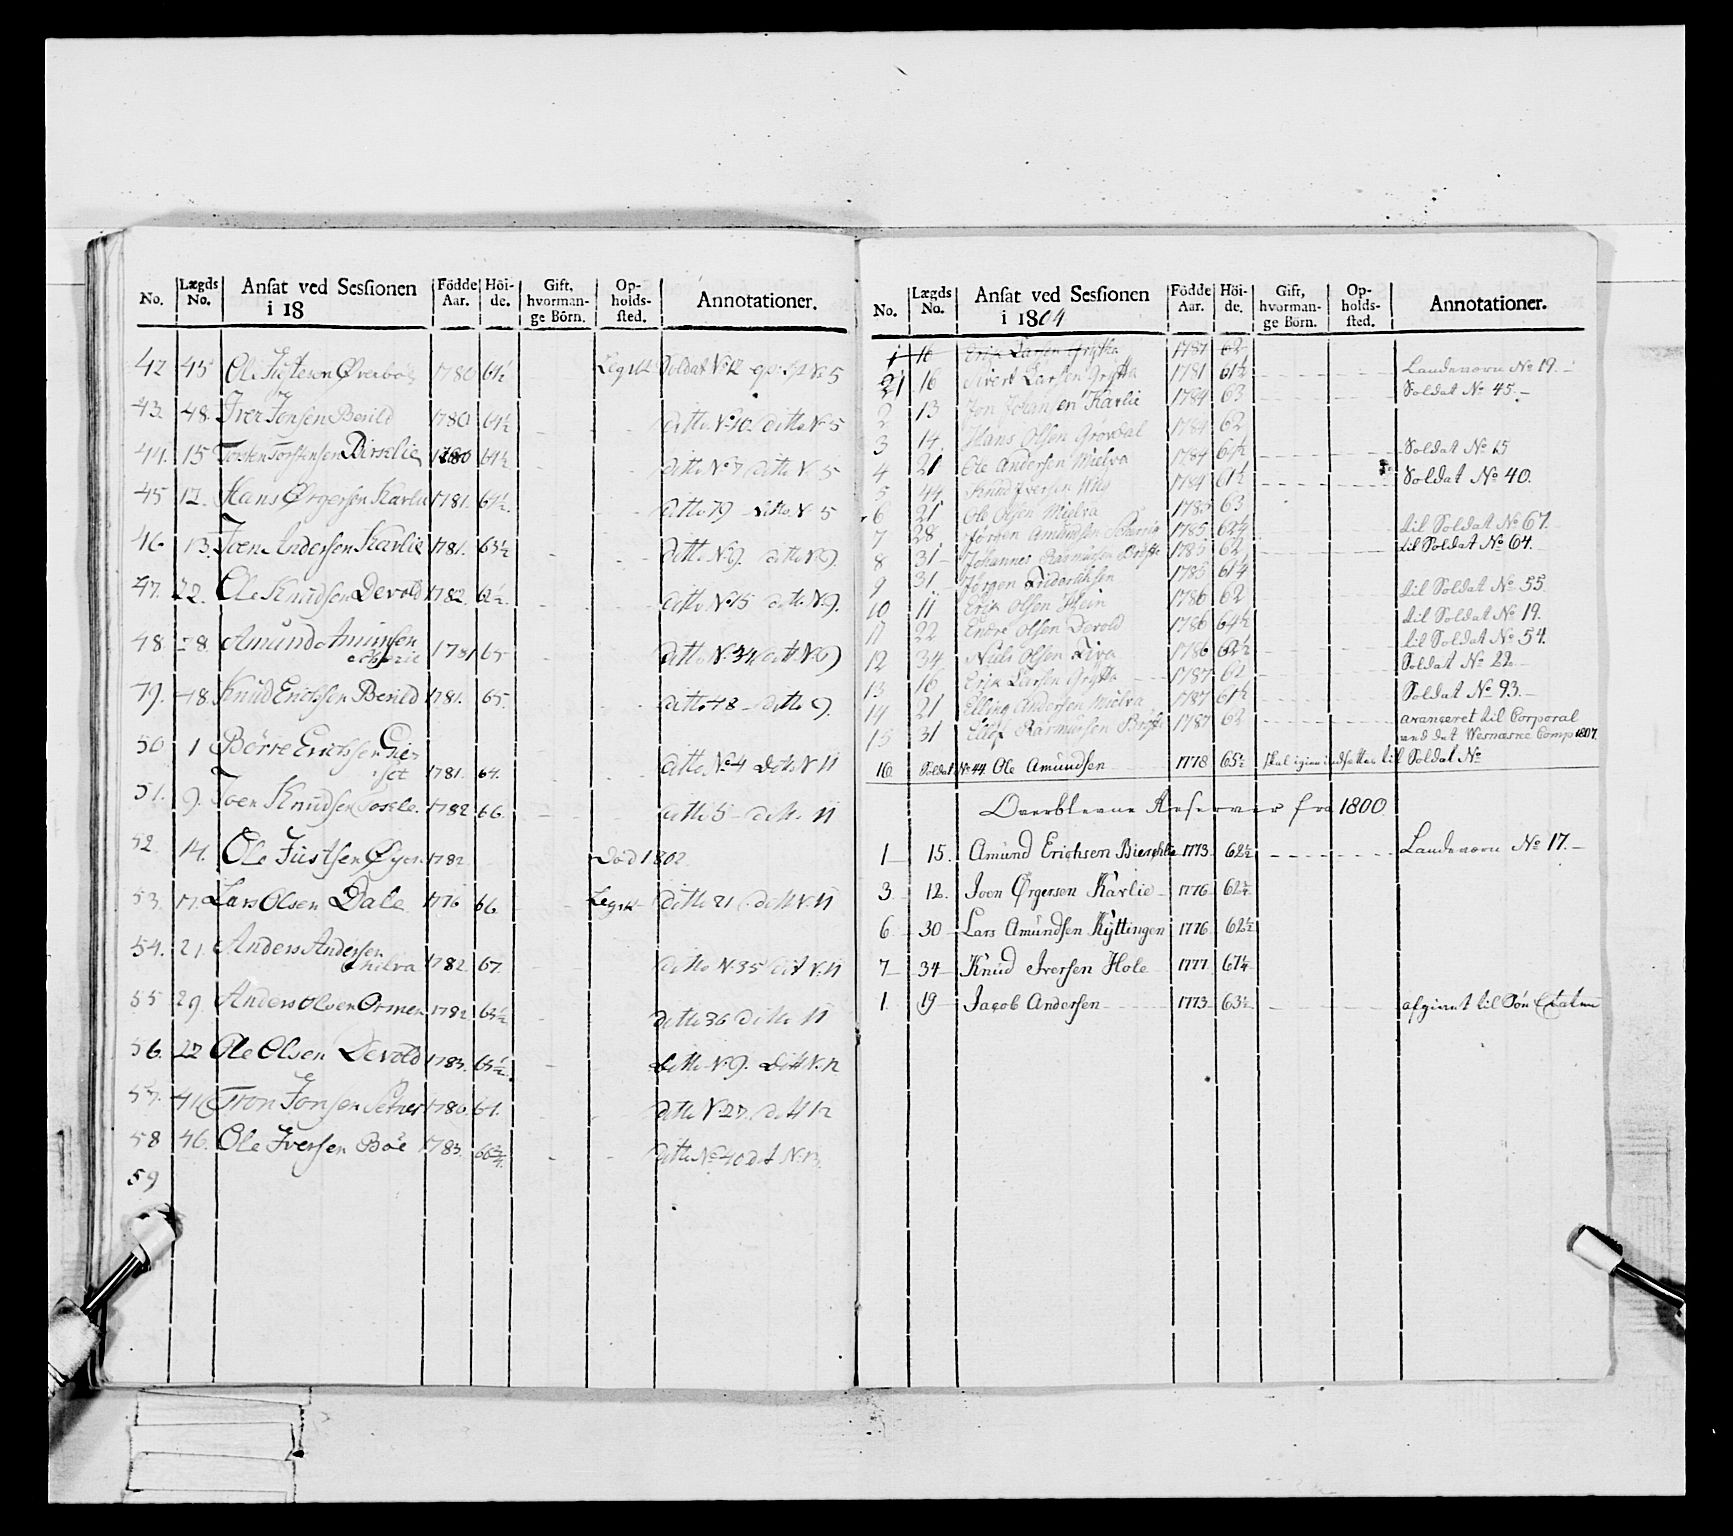 No. Lægds No. Ansat ved Sessionen i 18 Födde Aar. Höi-de. Gift, hvorman-ge Börn. Op-holds-sted. Annotationer.
42 45 Ole 1780 61½ Soldat No 12
43. 48. Iver Jonsen Berild 1780 61½ ditto No 10. ditto No 5
44. 15 Torsten Torstensen 1780 61½ ditto No 7 ditto No 5
45 12. Hans Ørgersen Karlie 1781. 61½. ditto 79 ditto No 5
46 13. Joen Andersen Karlie 1781. 63½ ditto No 9. ditto No 9.
47. 22. Ole Knudsen Devold 1782. 62½. ditto No 15 ditto No 9.
48. 28. Amund
1781 65 ditto No 34 ditt No 9
48. Knud Erichsen Berild 1781. 65. ditto 48 ditto 9.
50 1 Börre Erichsen
1781. 64. ditto No 4 ditto No 11
51. 9. Joen Knudsen 1782 66. ditto 5 ditto 11
52. 14. Ole Justsen Øyen 1782 Död 1802
53. 17. Lars Olsen Dale 1776 66 ditto 21 ditto No 11
54. 21. Anders Andersen
Mielva 1782 67. ditto No 35 ditt No 11
55 29 Anders Olsen Ormen 1782 63½ ditto 36 ditto 11
56. 22 Ole Olsen Devold 1783. 63½. ditto No 9. ditt No 12
57. 41 Tron Jonsen 1780. 61. ditto No 27. ditt 12
58 46. Ole Iversen Böe 1783. 66¾. ditto No 40 dit No 13.
59
No. Lægds No. Ansat ved Sessionen i 1804 Födde Aar. Höi-de. Gift, hvorman-ge Börn. Op-holds-sted. Annotationer.
1 16 Erik Larsen Grytta 1787 62
21 16 Sivert Larsen Grytta 1781 61½ Landeværn No 19.
2 13 Jon Johansen Karlie 1784 63 Soldat No 45.
3 14 Hans Olsen Grovdal 1784 62
4 21 Ole Andersen Mielva 1784 61½ Soldat No 15
5 44 Knud Iversen 1784 61½ Soldat No 40.
6 21 Ole Olsen Mielva 1785 63
7 28. Jörgen Amundsen 1785. 62½ til Soldat No 67.
8 31 Johannes Rasmussen 1785 62 til Soldat No 64.
9 31. Jörgen 1785 61½
10 11 Erik Olsen Hein 1786 62 til Soldat No 55
11 22 Endre Olsen Devold 1786 64½ til Soldat No 19.
12 34 Niels Olsen 1786 62½ til Soldat No 54.
13 16 Erik Larsen Grytta 1787 62 Soldat No 22
14 21 Elling Andersen Mielva 1787 61½ Soldat No 93.
15 31 Rasmussen 1787 62 avanceret til Corporal
ved det Wesnæsne Comp 1807.
16 Soldat No 44 Ole Amundsen 1778 65½ skal igien indsættes til Soldat No
Overblevne Reserver fra 1800
1 15. Amund Erichsen 1773. 62½ Landeværn No 17.
3 12. Joen Ørgersen Karlie 1776 62¾
6 30 Lars Amundsen Kyttingen 1776 62½
7 34 Knud Iversen Hole 1777 67¼
1 19 Jacob Andersen 1773 63½ afgivet til Söe Etaten